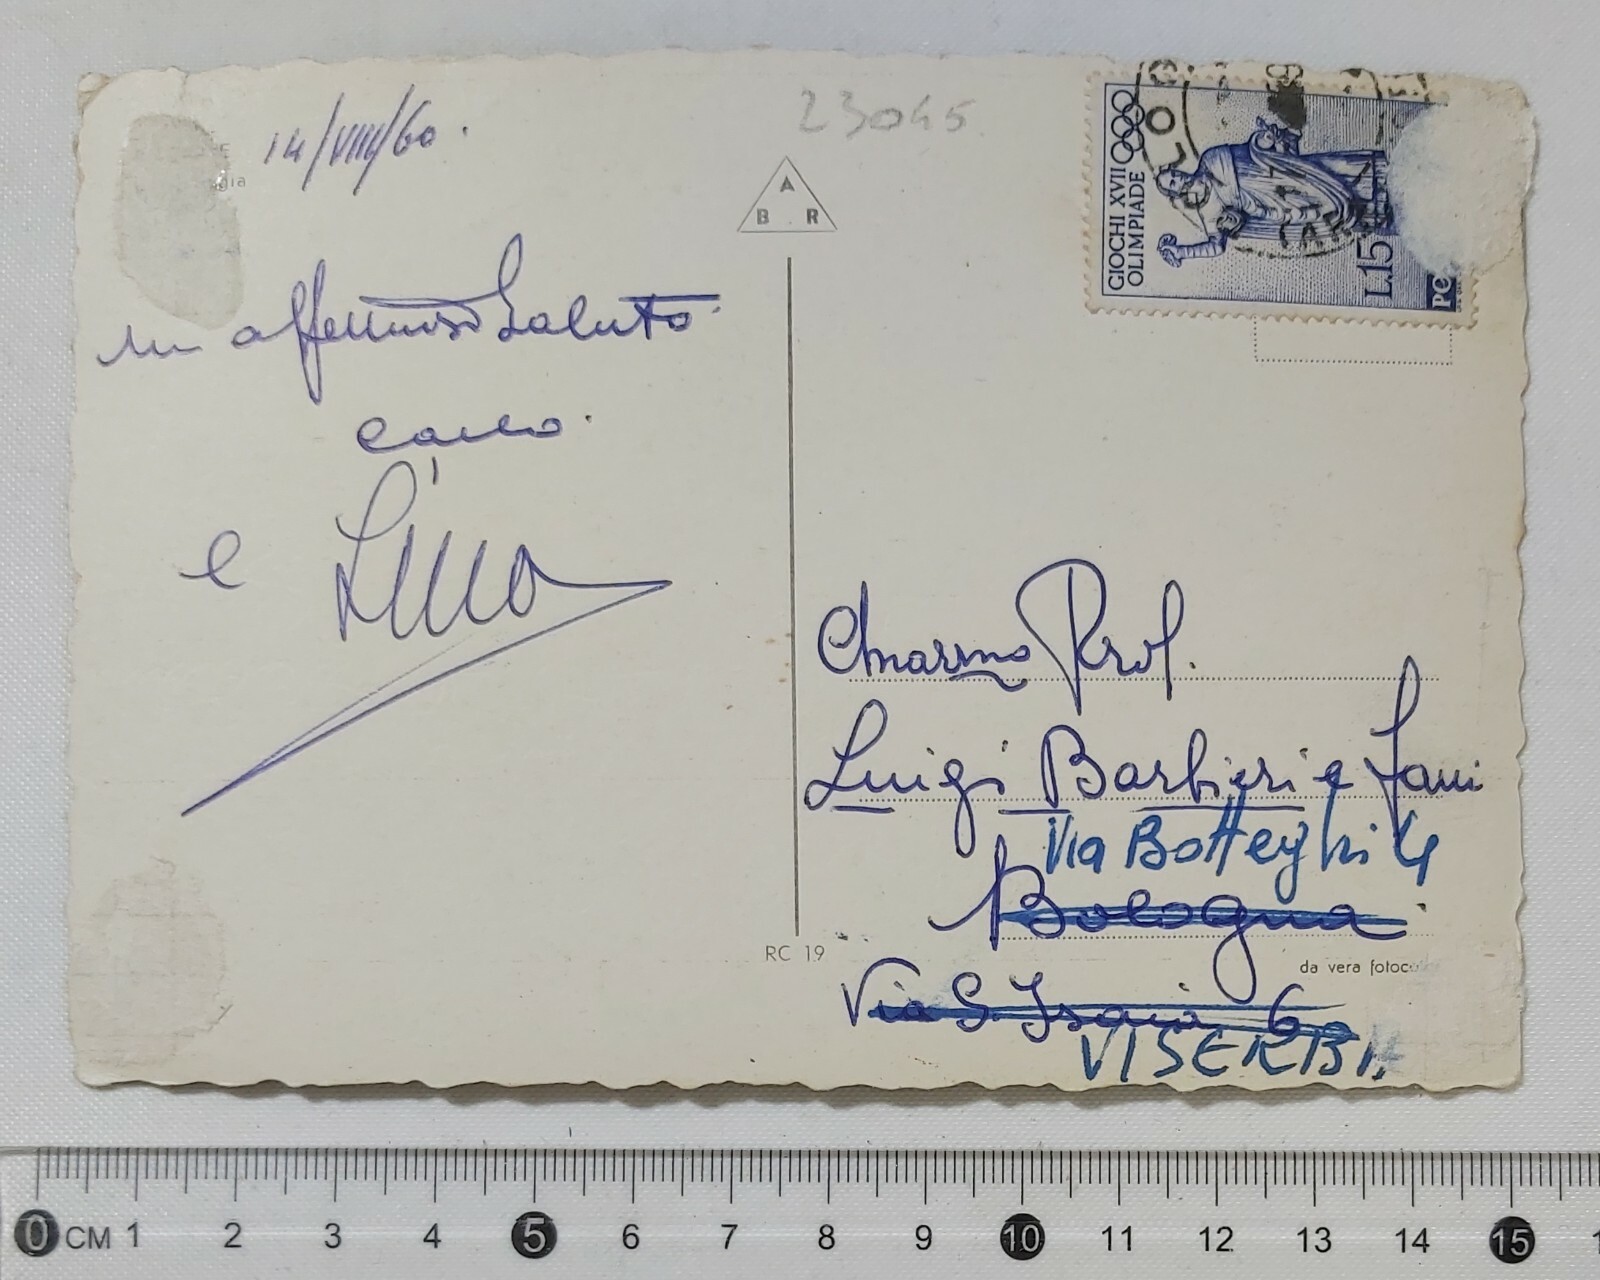 14/VIII/60.
gia
23045
A
B R
GIOCHI XVII
OLIMPIADE
L.15
un affettuoso Saluto.
Carlo.
e Lina
Chiar.mo Prof.
Luigi Barbieri e Fam
Via Botteghi 4
Bologna
RC 19
da vera fotoc
Via S. Isaia 60
VISERBA
0 CM 1 2 3 4 5 6 7 8 9 10 11 12 13 14 15